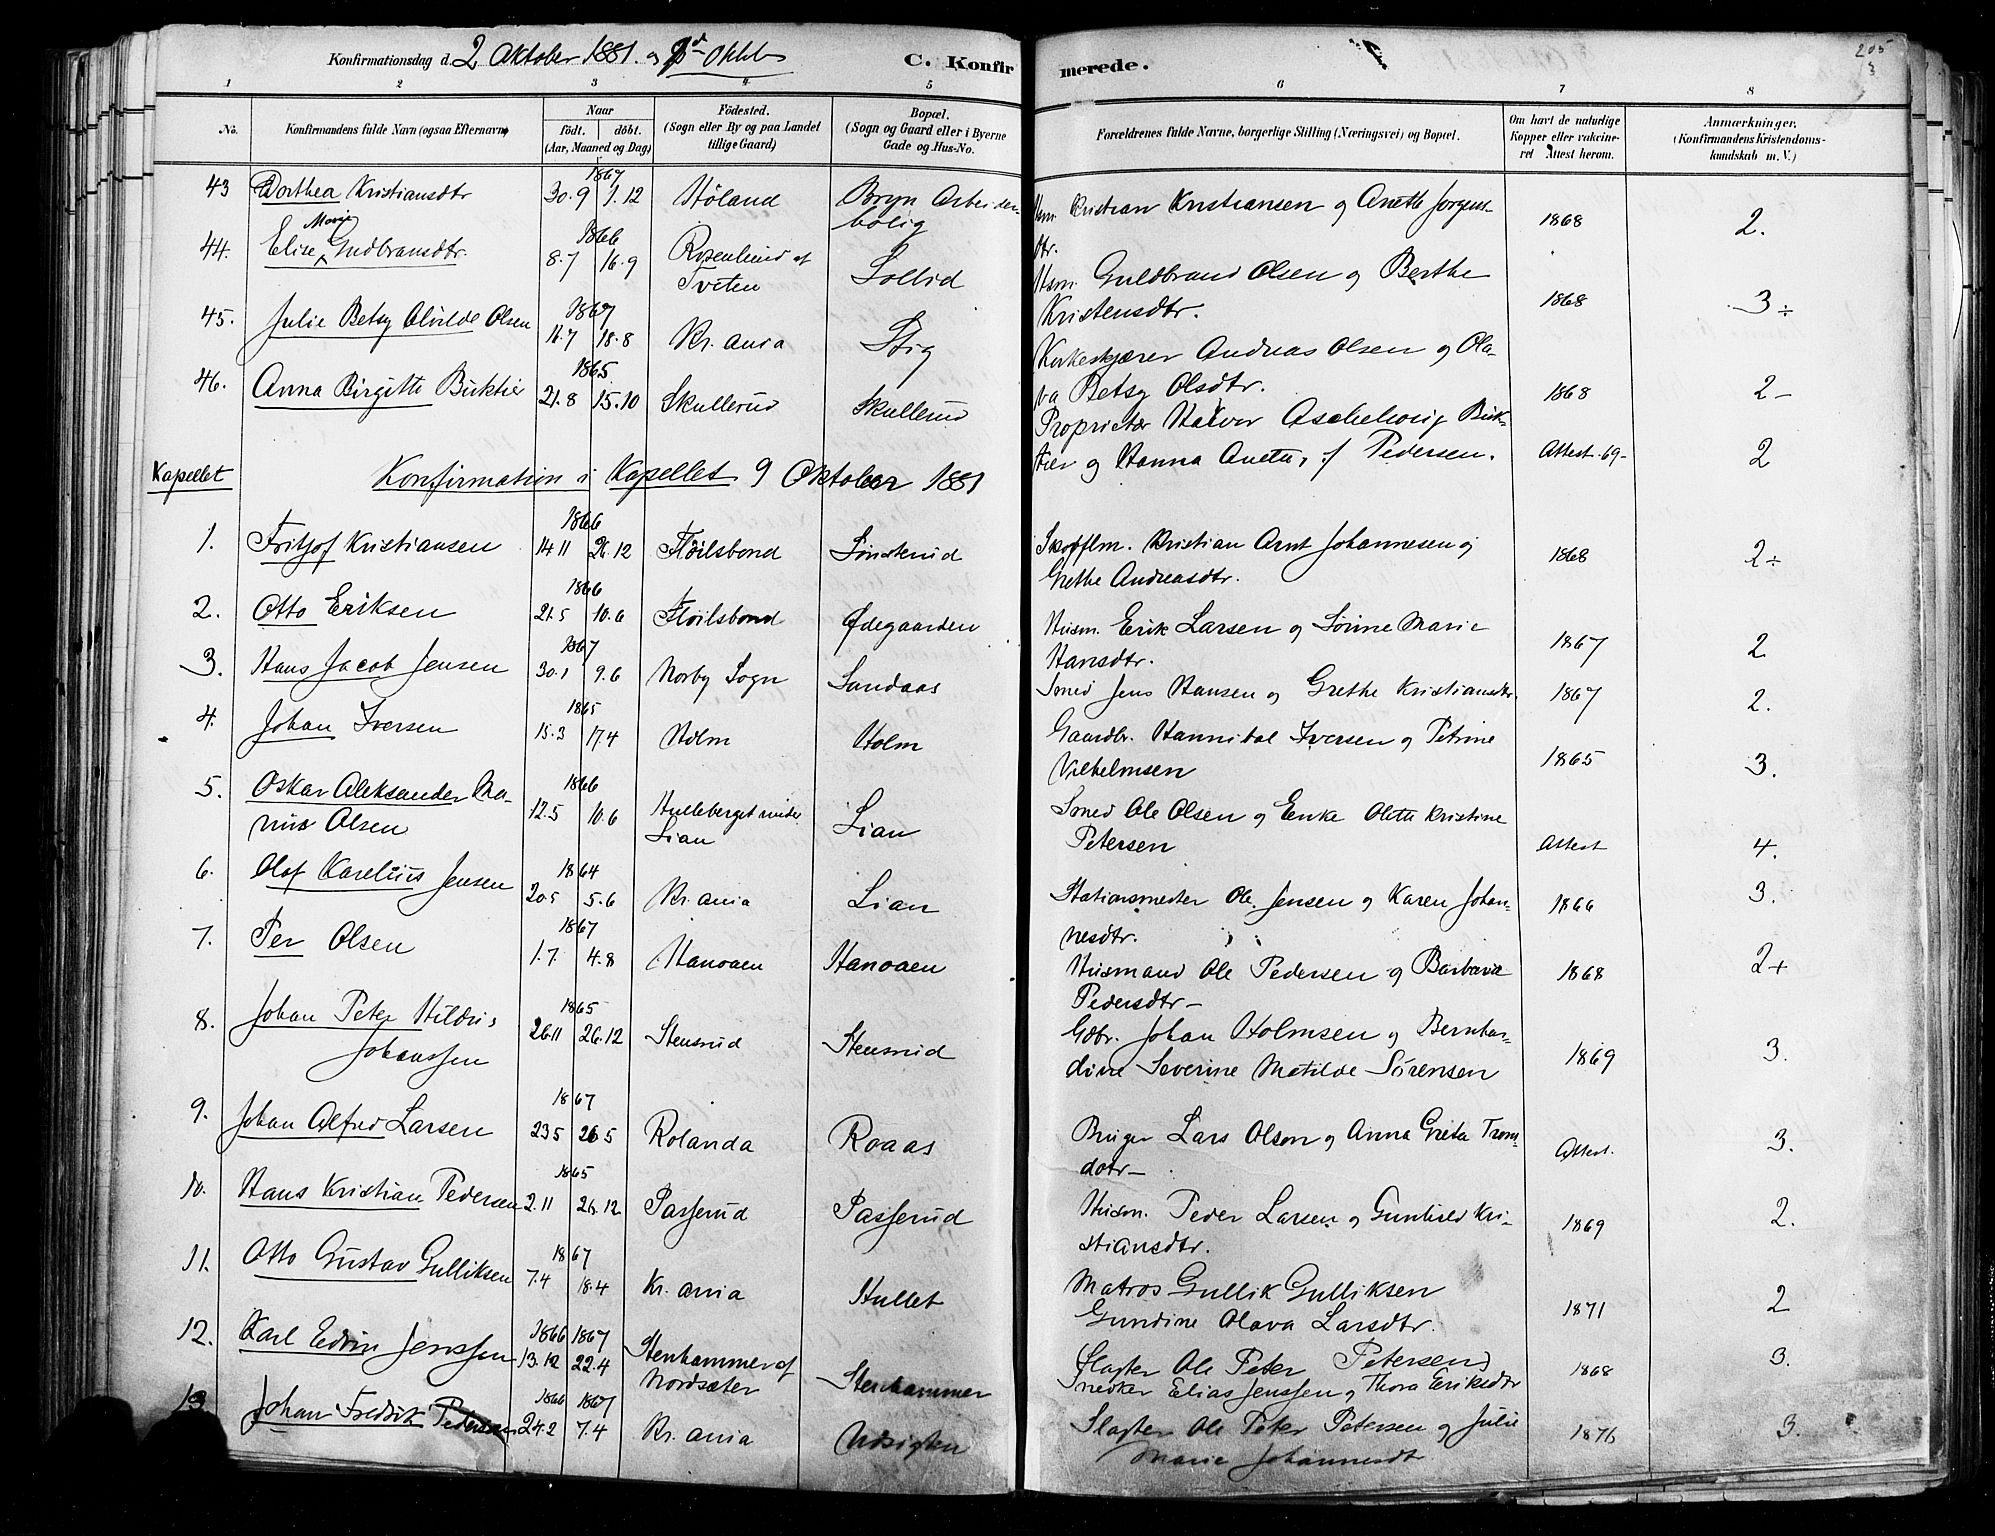 Konfirmationsdag d. 2 Oktober 1881. og 9d Oktbr
C. Konfirmerede.
205
1 2 3 4 5 6 7 8
No. Konfirmandens fulde Navn (ogsaa Efternavn) Naar født. døbt. (Aar, Maaned og Dag) Födested. (Sogn eller By og paa Landet tillige Gaard) Bopæl. (Sogn og Gaard eller i Byerne Gade og Hus-No. Forældrenes fulde Navne, borgerlige Stilling (Næringsvei) og Bopæl. Om havt de naturlige Kopper eller vakcineret Attest herom. Anmærkninger, (Konfirmandens Kristendomskundskab m. V.)
43 Dorthea Kristiansdtr 1867 30.9 1.12 Höland Bryn Arbeiderbolig Hsm. Kristian Kristiansen og Anette Jorgensdtr. 1868 2.
44. Elise Marie Gudbransdtr. 1866 8.7 16.9 Rosenlund af Tveten Sollid Hsm. Guldbrand Olsen og Berthe Kristensdtr. 1868 3÷
45. Julie Betsy Alvilde Olsen 1867 11.7 18.8 Kr.ania Stig Kirkeskjærer Andreas Olsen og Olava Betsy Olsdtr. 1868 2-
46. Anna Birgitte Buktier 1865 21.8 15.10 Skullerud Skullerud Proprietær Halvor Aschehoug Buktier og Hanna Anette, f Pedersen. Attest -69- 2
Kapellet Konfirmation i Kapellet 9 Oktober 1881
1. Fritjof Kristiansen 1866 14 11 26.12 Flöilsbond Sönsterud Skogflm. Kristian Arnt Johannesen og Grethe Andreasdtr. 1868 2÷
2. Otto Eriksen 1866 21.5 10.6 Flöilsbond Ødegaarden Husm. Erik Larsen og Sörine Marie Hansdtr. 1867 2
3. Hans Jacob Jensen 1867 30.1 9.6 Norby Sogn Sandaas Smed Jens Hansen og Grethe Kristiansdtr. 1867 2.
4. Johan Iversen 1865 15.3 17.4 Holm Holm Gaardbr. Hannibal Iversen og Petrine Vilhelmsen 1865 3.
5. Oskar Aleksander Marius Olsen 1866 12.5 10.6 Hulleberget under Lian Lian Smed Ole Olsen og Enke Olette Kristine Petersen Attest 4.
6. Olaf Karelius Jensen 1864 20.5 5.6 Kr.ania Lian Stationsmester Ole Jensen og Karen Johannesdtr. 1866 3.
7. Per Olsen 1867 1.7. 4.8 Hanoaen Hanoaen Husmand Ole Pedersen og Barbara Pedersdtr- 1868 2+
8. Johan Peter Hildris Johanssen 1865 26.11 26.12 Stensrud Stensrud Gdbr. Johan Holmsen og Bernhardine Severine Matilde Sörensen 1869 3.
9. Johan Alfred Larsen 1867 23 5 26 5 Rolanda Roaas Bruger Lars Olson og Anna Greta Tromdotr- Attest. 3.
10. Hans Kristian Pedersen 1865 2.11 26.12 Passerud Passerud Husm. Peder Larsen og Gunhild Kristiansdtr. 1869 2.
11. Otto Gustav Gulliksen 1867 7.4 18.4 Kr.ania Hullet Matros Gullik Gulliksen Gundine Olava Larsdtr. 1871 2
12. Karl Edvin Jenssen 1866 1867 13.12 22.4 Stenhammer af Nordsæter Stenhammer (Slagter Ole Peter Petersen) Snedker Elias Jenssen og Thora Eriksdtr 1868 3.
13 Johan Fredrik Pedersen 1866 1867 24.2 7.4 Kr.ania Udsigten Slagter Ole Peter Petersen og Julie Marie Johannesdt 1876 3.